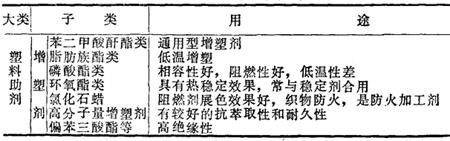 大类 子类 用途
苯二甲酸酐酯类 通用型增塑剂
塑 增 脂肪族酯类 低温增塑
料 磷酸酯类 相容性好，阻燃性好，低温性差
助 塑 环氧酯类 具有热稳定效果，常与稳定剂合用
剂 氯化石蜡 阻燃剂展色效果好，织物防火，是防火加工剂
剂 高分子量增塑剂 有较好的抗萃取性和耐久性
偏苯三酸酯等 高绝缘性